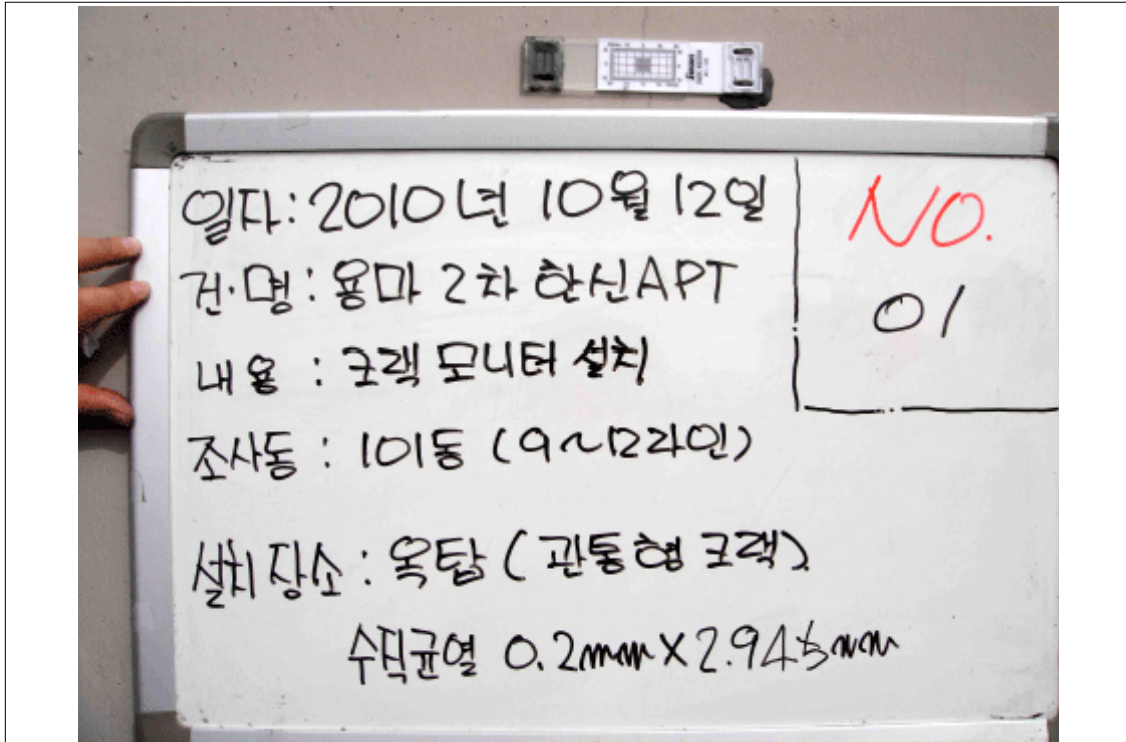 일자: 2010년 10월 12일
NO.
01
건·명: 용마 2차 한신APT
내용 : 크랙 모니터 설치
조사동 : 101동 (9~12라인)
설치장소 : 옥탑 (관통형 크랙)
수직균열 0.2mm×2.945mm